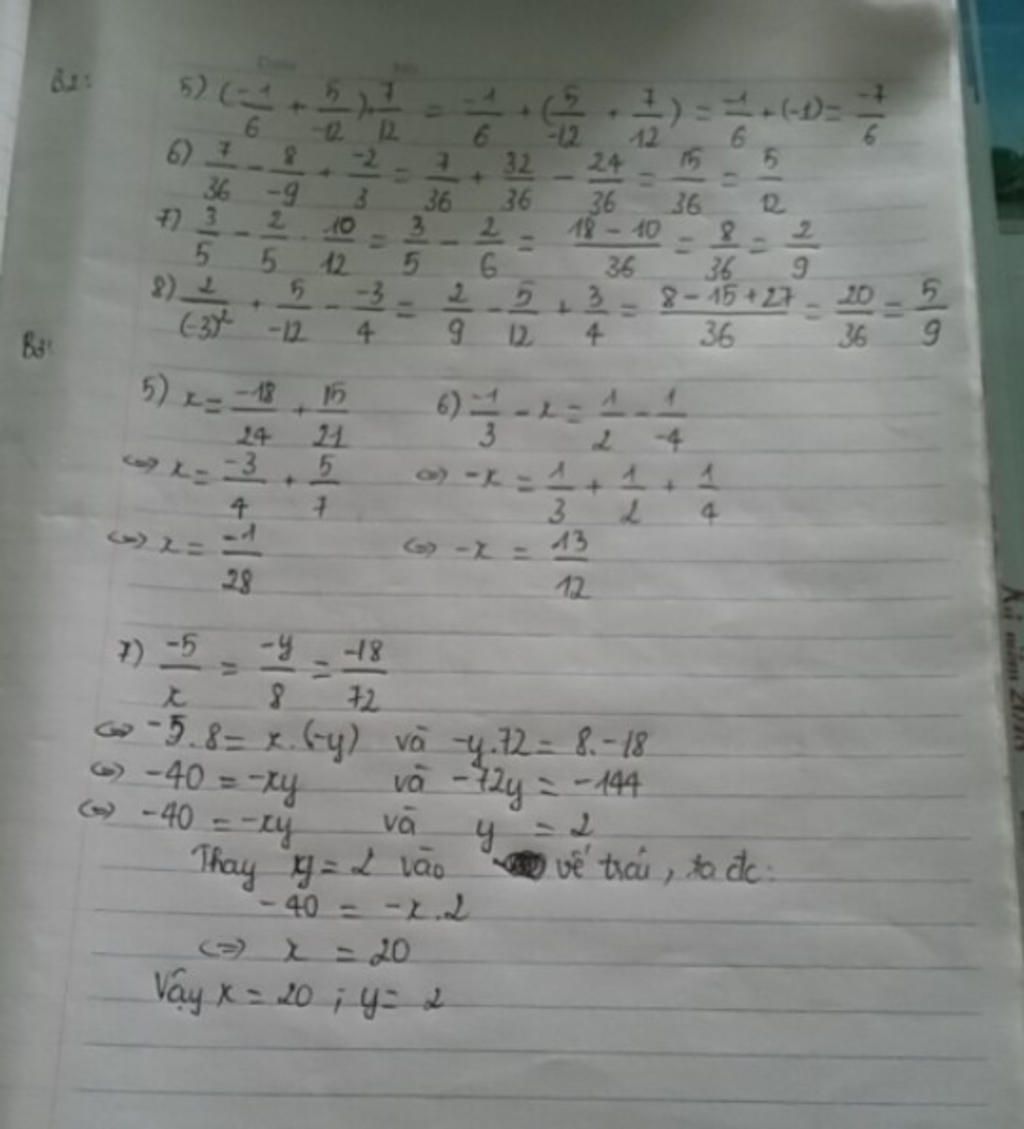 B2:
5) (-1/6 + 5/-12) + 7/12 = -1/6 + (5/-12 + 7/12) = -1/6 + (-1) = -7/6
6) 7/36 - 8/-9 + -2/3 = 7/36 + 32/36 - 24/36 = 15/36 = 5/12
7) 3/5 - 2/5 . 10/12 = 3/5 - 2/6 = 18 - 10/36 = 8/36 = 2/9
8) 2/(-3)² + 5/-12 - -3/4 = 2/9 - 5/12 + 3/4 = 8 - 15 + 27/36 = 20/36 = 5/9
B3:
5) x = -18/24 + 15/21 6) -1/3 - x = 1/2 - 1/-4
<=> x = -3/4 + 5/7 <=> -x = 1/3 + 1/2 + 1/4
<=> x = -1/28 <=> -x = 13/12
7) -5/x = -y/8 = -18/72
<=> -5.8 = x.(-y) và -y.72 = 8.-18
<=> -40 = -xy và -72y = -144
<=> -40 = -xy và y = 2
Thay y = 2 vào vế trái, ta đc:
-40 = -x.2
<=> x = 20
Vậy x = 20 ; y = 2